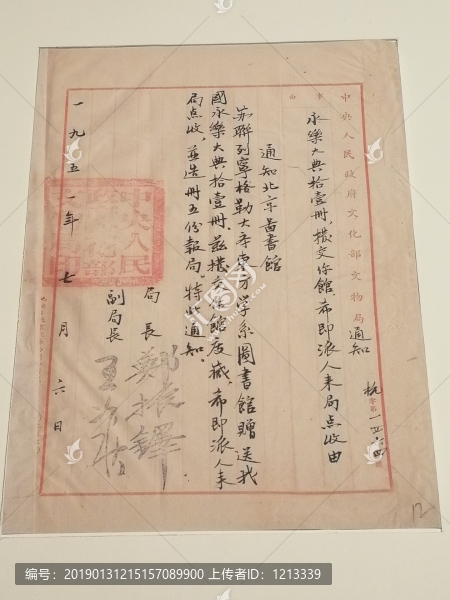 中央人民政府文化部文物局通知
事由
永樂大典拾壹冊，撥交你館，希即派人来局点收由
通知北京圖書館
苏聯列寧格勒大学東方学系圖書館贈送我
國永樂大典拾壹冊，茲撥交你館庋藏，希即派人来
局点收，並造冊五份報局。特此通知。
局長 鄭振鐸
副局長 王冶秋
一九五一年七月六日
12
编号：20190131215157089900 上传者ID：1213339